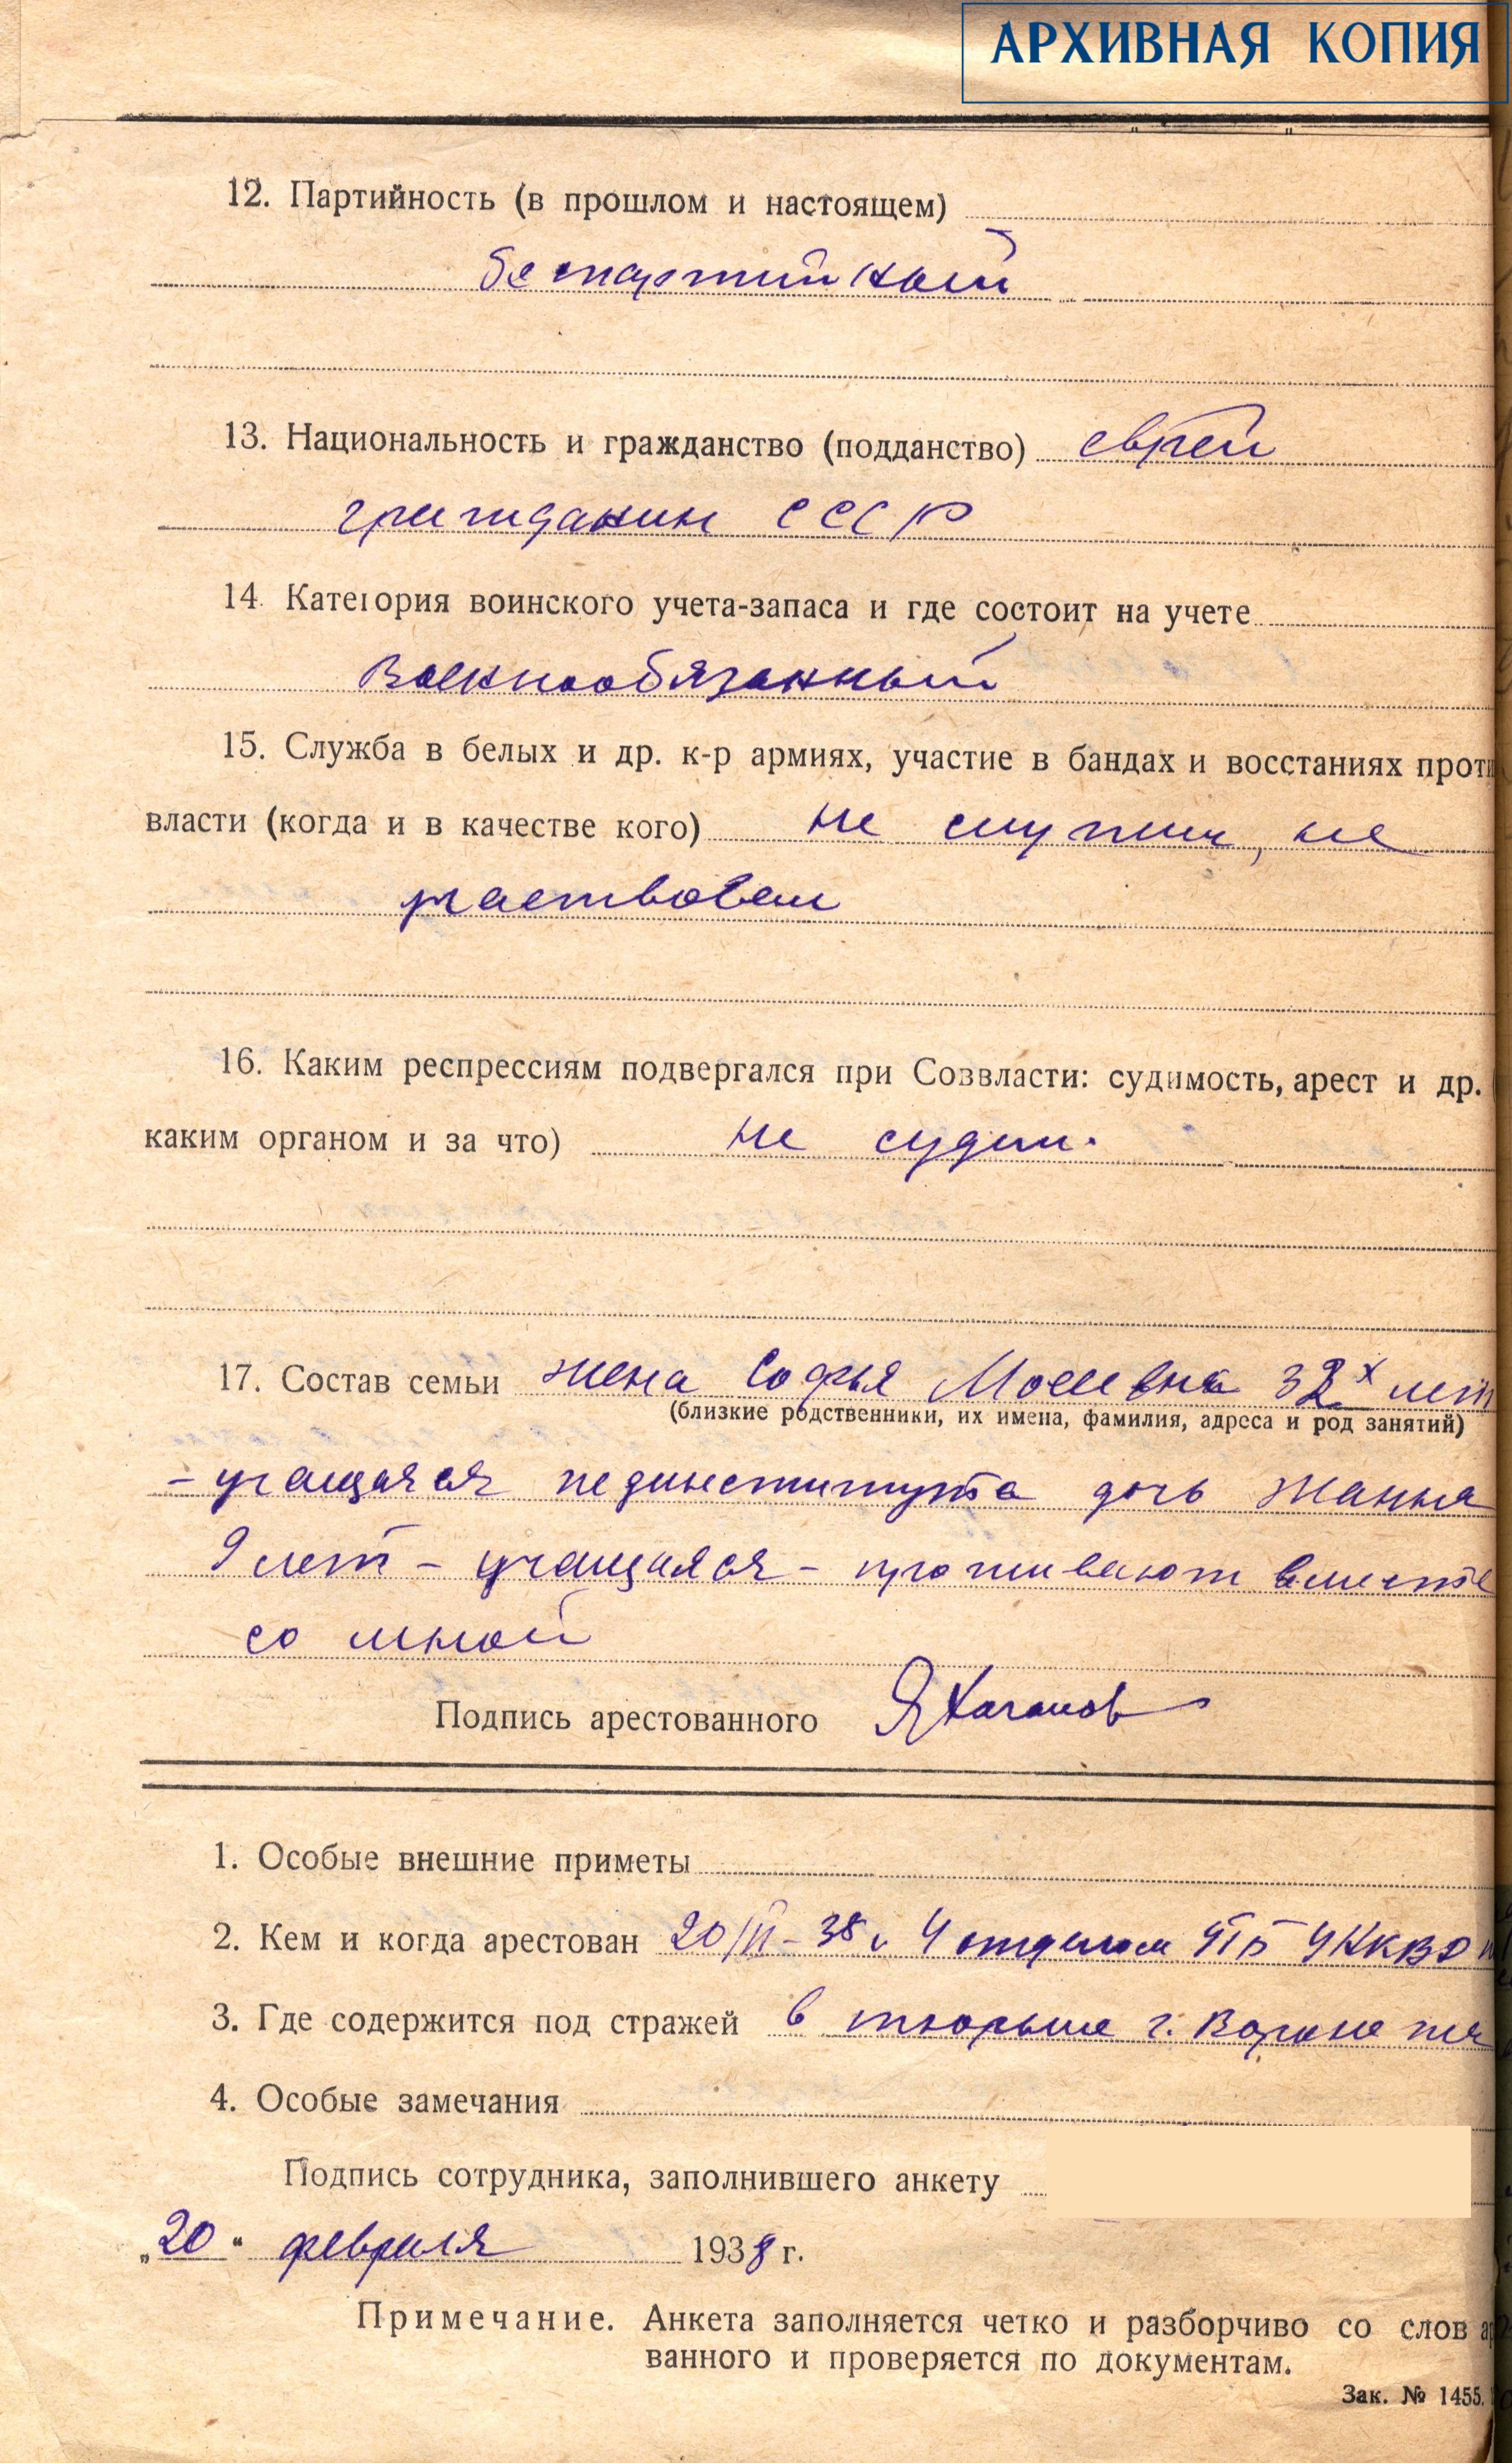 АРХИВНАЯ КОПИЯ
12. Партийность (в прошлом и настоящем)
беспартийный
13. Национальность и гражданство (подданство) еврей
гражданин СССР
14. Категория воинского учета-запаса и где состоит на учете
Военнообязанный
15. Служба в белых и др. к-р армиях, участие в бандах и восстаниях проти
власти (когда и в качестве кого) не служил, не
участвовал
16. Каким респрессиям подвергался при Соввласти: судимость, арест и др.
каким органом и за что) не судим.
17. Состав семьи жена Софья Моисеевна 32х лет
(близкие родственники, их имена, фамилия, адреса и род занятий)
- учащаяся пединститута дочь Жанна
9 лет - учащаяся - проживают вместе
со мной
Подпись арестованного ЯКаганов
1. Особые внешние приметы
2. Кем и когда арестован 20/II-38г 4 отделом УГБ УНКВД
3. Где содержится под стражей в тюрьме г. Воронежа
4. Особые замечания
Подпись сотрудника, заполнившего анкету
„20“ февраля 1938 г.
Примечание. Анкета заполняется четко и разборчиво со слов
ванного и проверяется по документам.
Зак. № 1455.